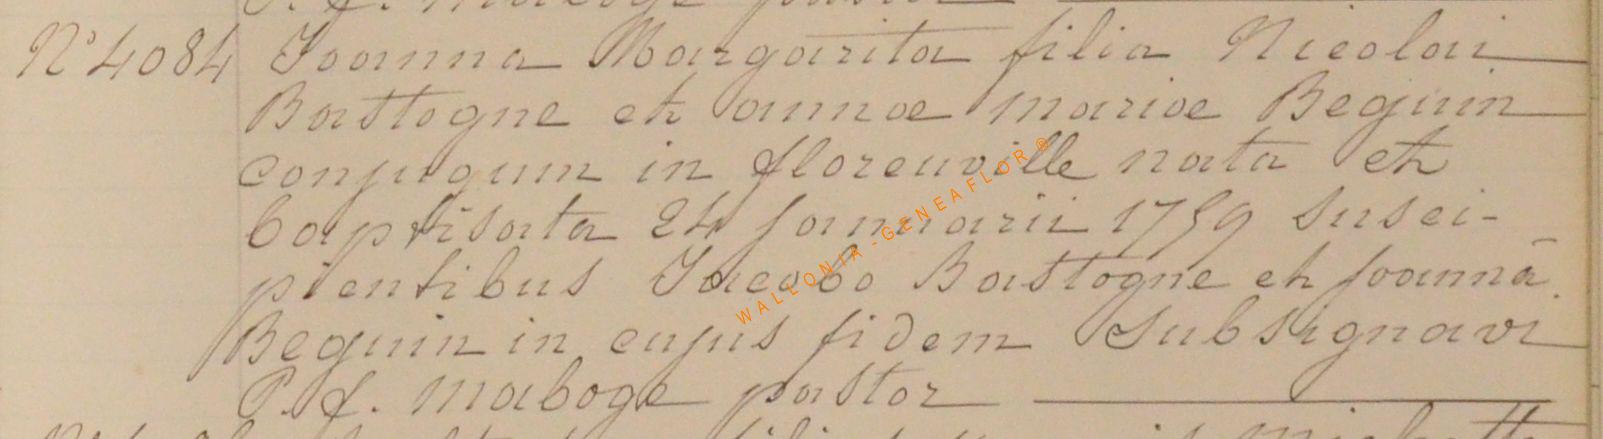 N° 4084 Joanna Margarita filia Nicolai
Bastogne et annae mariae Beguin
conjugum in florenville nata et
baptisata 24 januarii 1759 Susci-
pientibus Jacobo Bastogne et joannâ
Beguin in cujus fidem Subsignavi
P. f. Maboge pastor
WALLONIA-GENEAFLOR®